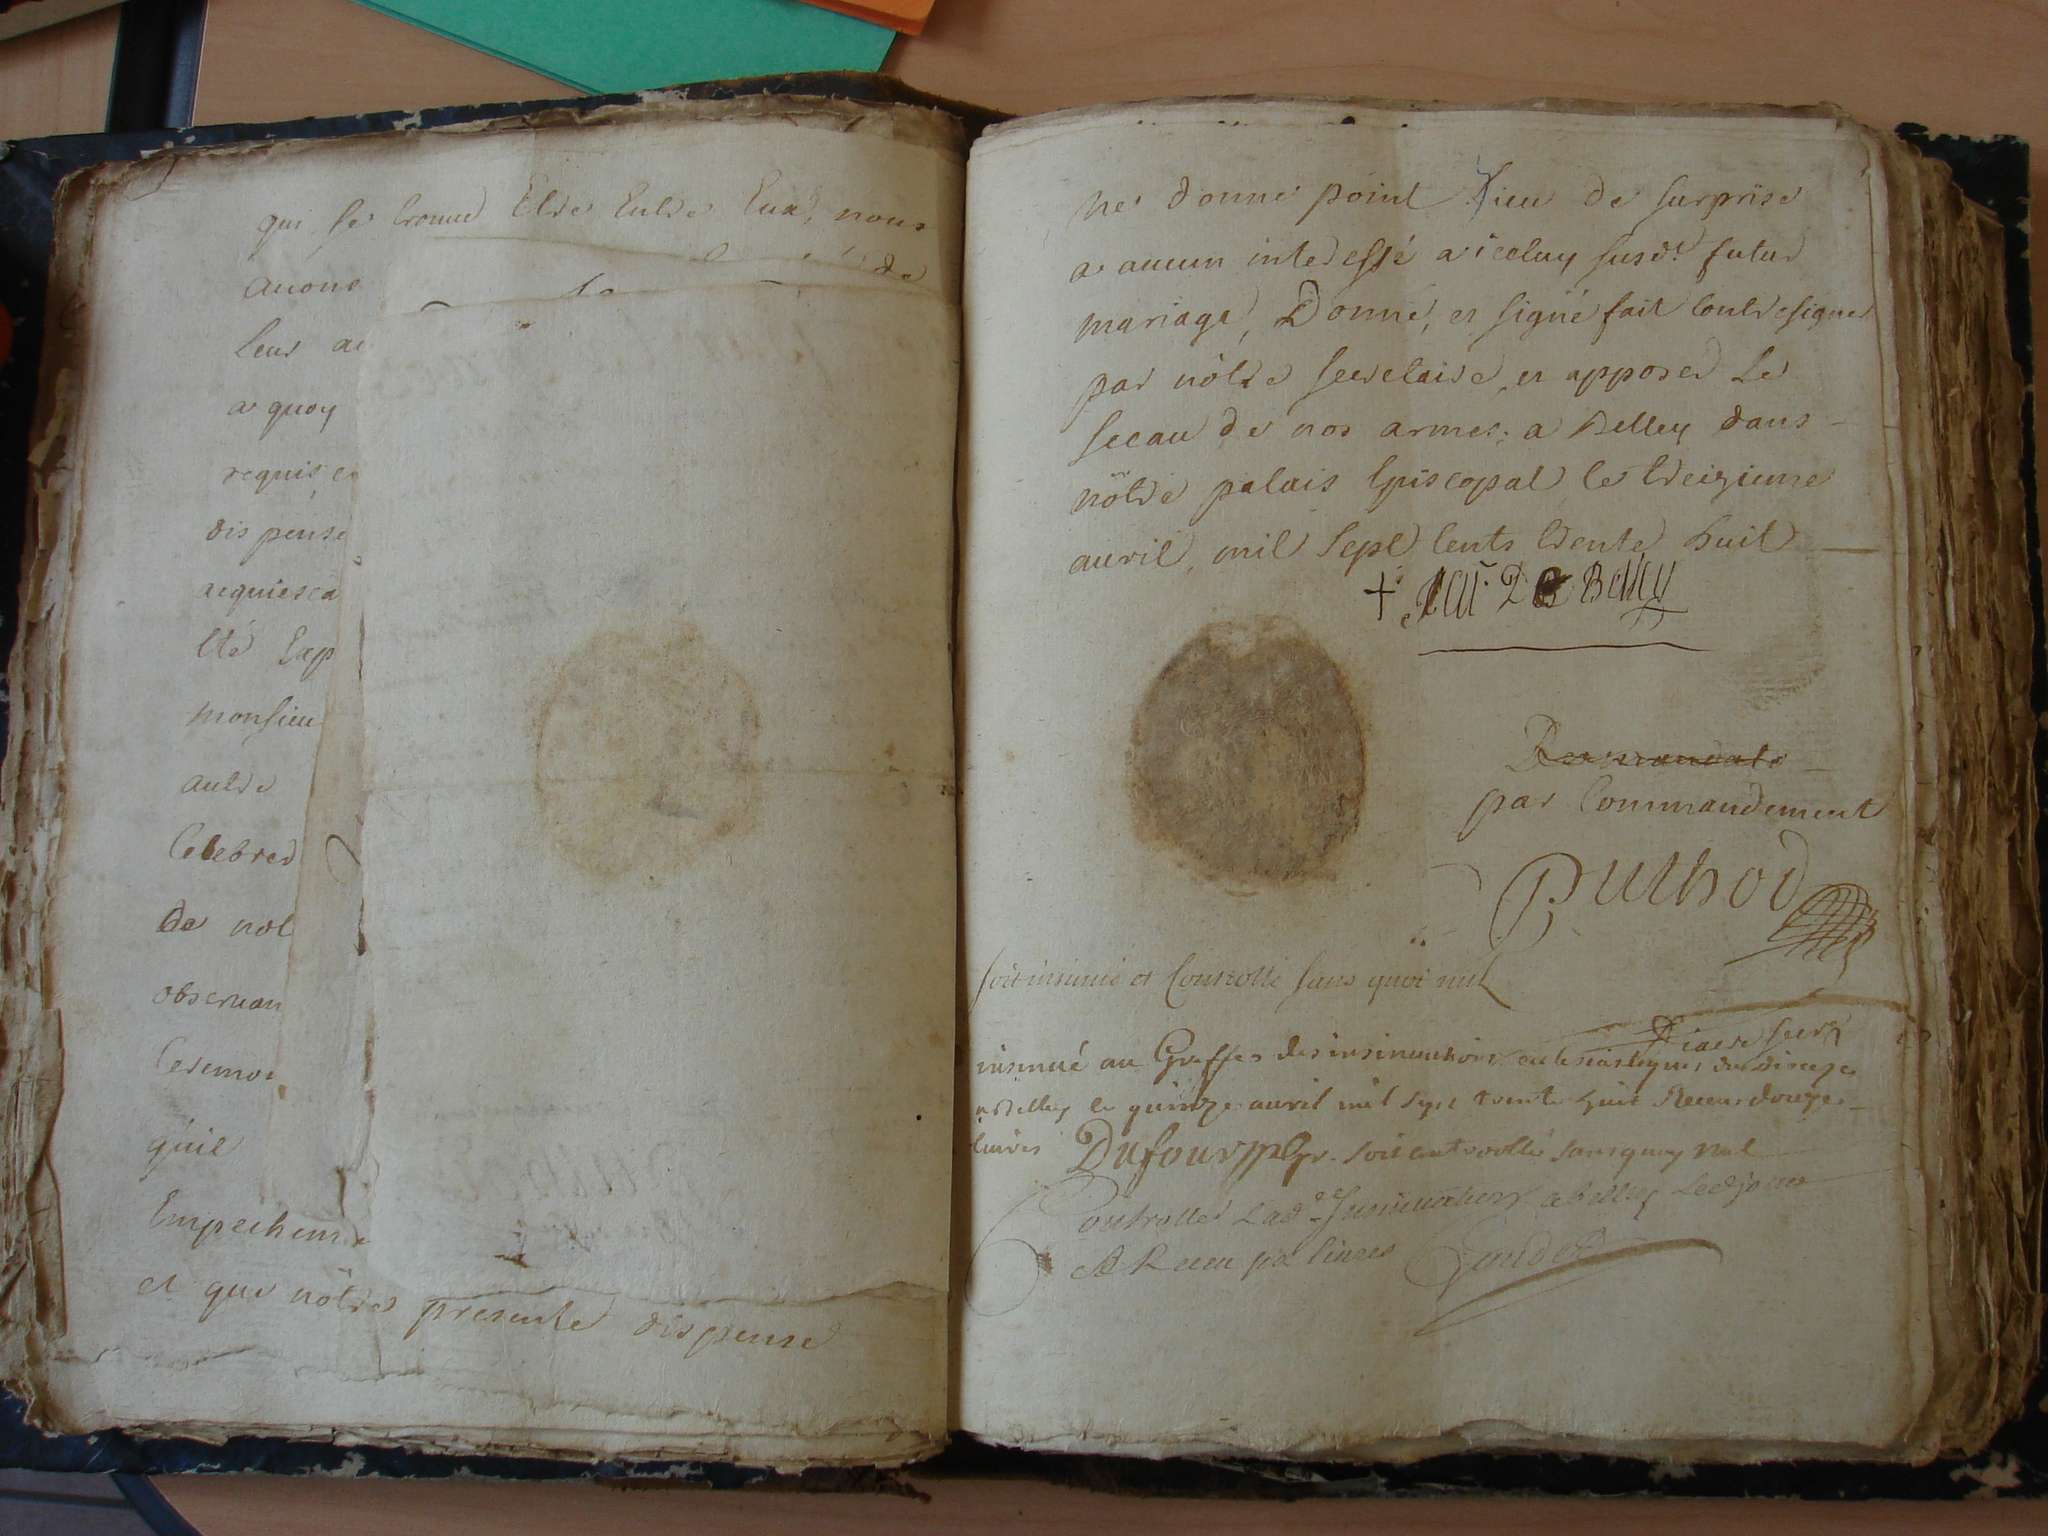 qui se trouve Etre Entre Eux, nous
avons
leur
a quoy
requis, e
dispense
acquiesca
lté Exp
monsieu
autre
Celebrer
de not
observan
Ceremo
qu'il
Empechem
et que nôtre presente dispense
ne donne point lieu de surprise
a aucun interessé a iceluy susdt futur
mariage, Donné, et signé fait contresigner
par nôtre secretaire, et apposer Le
sceau de nos armes, a Belley dans
nôtre palais Episcopal le treizieme
avril, mil sept cents trente huit
+ De Belley
De mandato
par Commandement
Puthod
soit insinué et Controllé sans quoi nul
insinué au Greffe des insinuations ecclesiastiques du diocese
a Belley le quinze avril mil sept trente huit Receu douze
livres Dufour soit controollé sans quoy nul
Controllé Lad. Insinuation a Belley Led jour
Et Receu livres